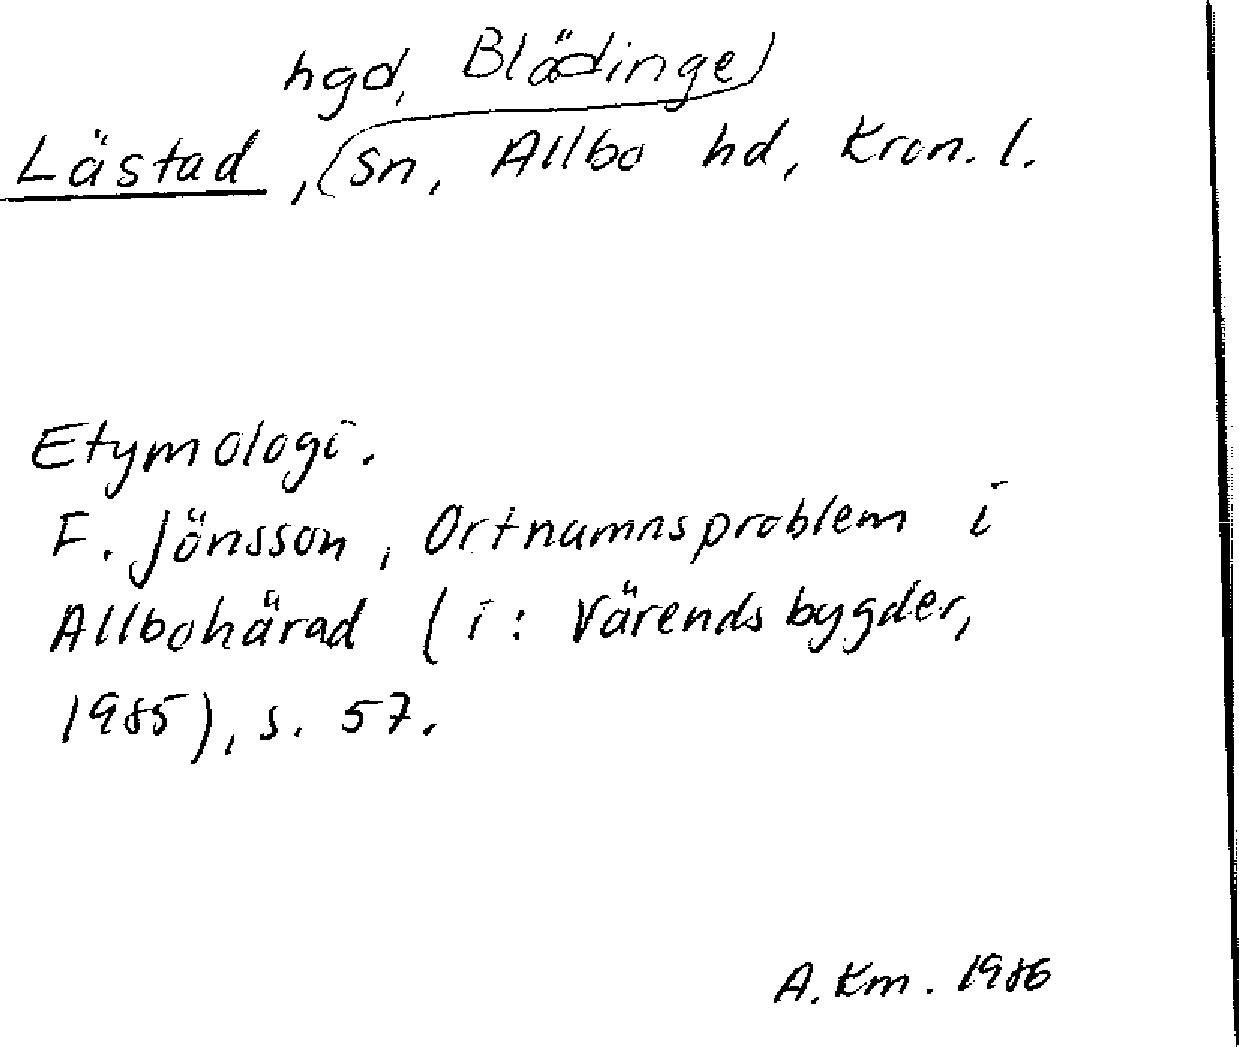 hgd, Blädinge
Lästad, sn, Allbo hd, Kron. l.
Etymologi.
F. Jönsson, Ortnamnsproblem i
Allbohärad (i: Värendsbygder,
1985), s. 57.
A. Km. 1986